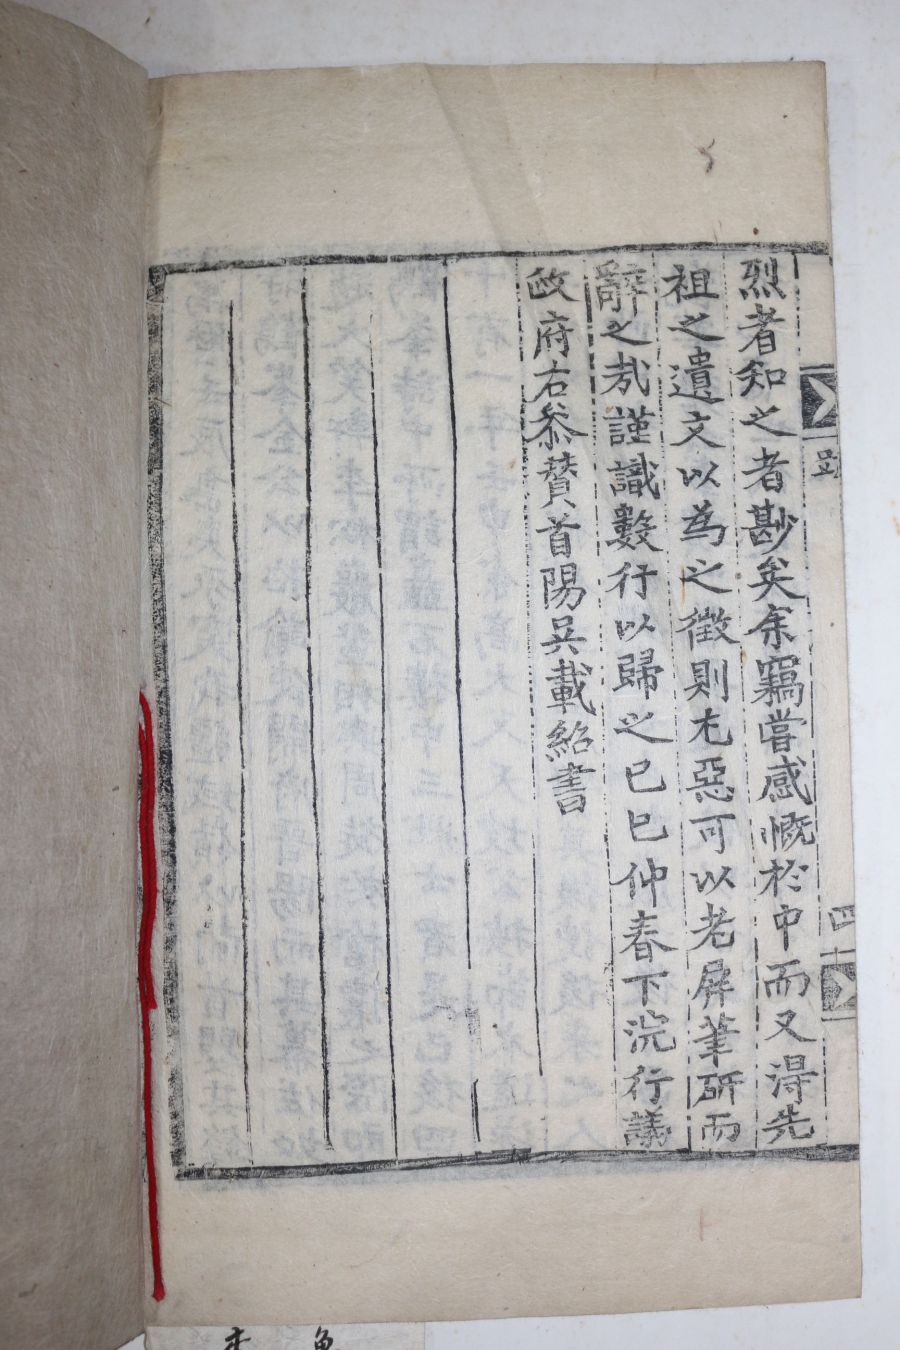 烈者知之者尠矣余竊嘗感慨於中而又得先
祖之遺文以為之徵則尤惡可以老屏筆硏而
辭之哉謹識數行以歸之己巳仲春下浣行議
政府右叅賛首陽吳載紹書
跋
四十